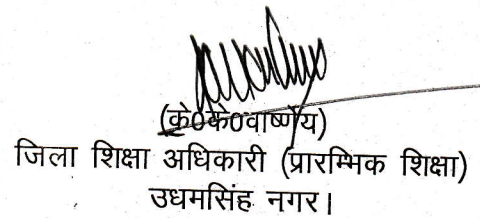 (के0के0वार्ष्णेय)
जिला शिक्षा अधिकारी (प्रारम्भिक शिक्षा)
उधमसिंह नगर।